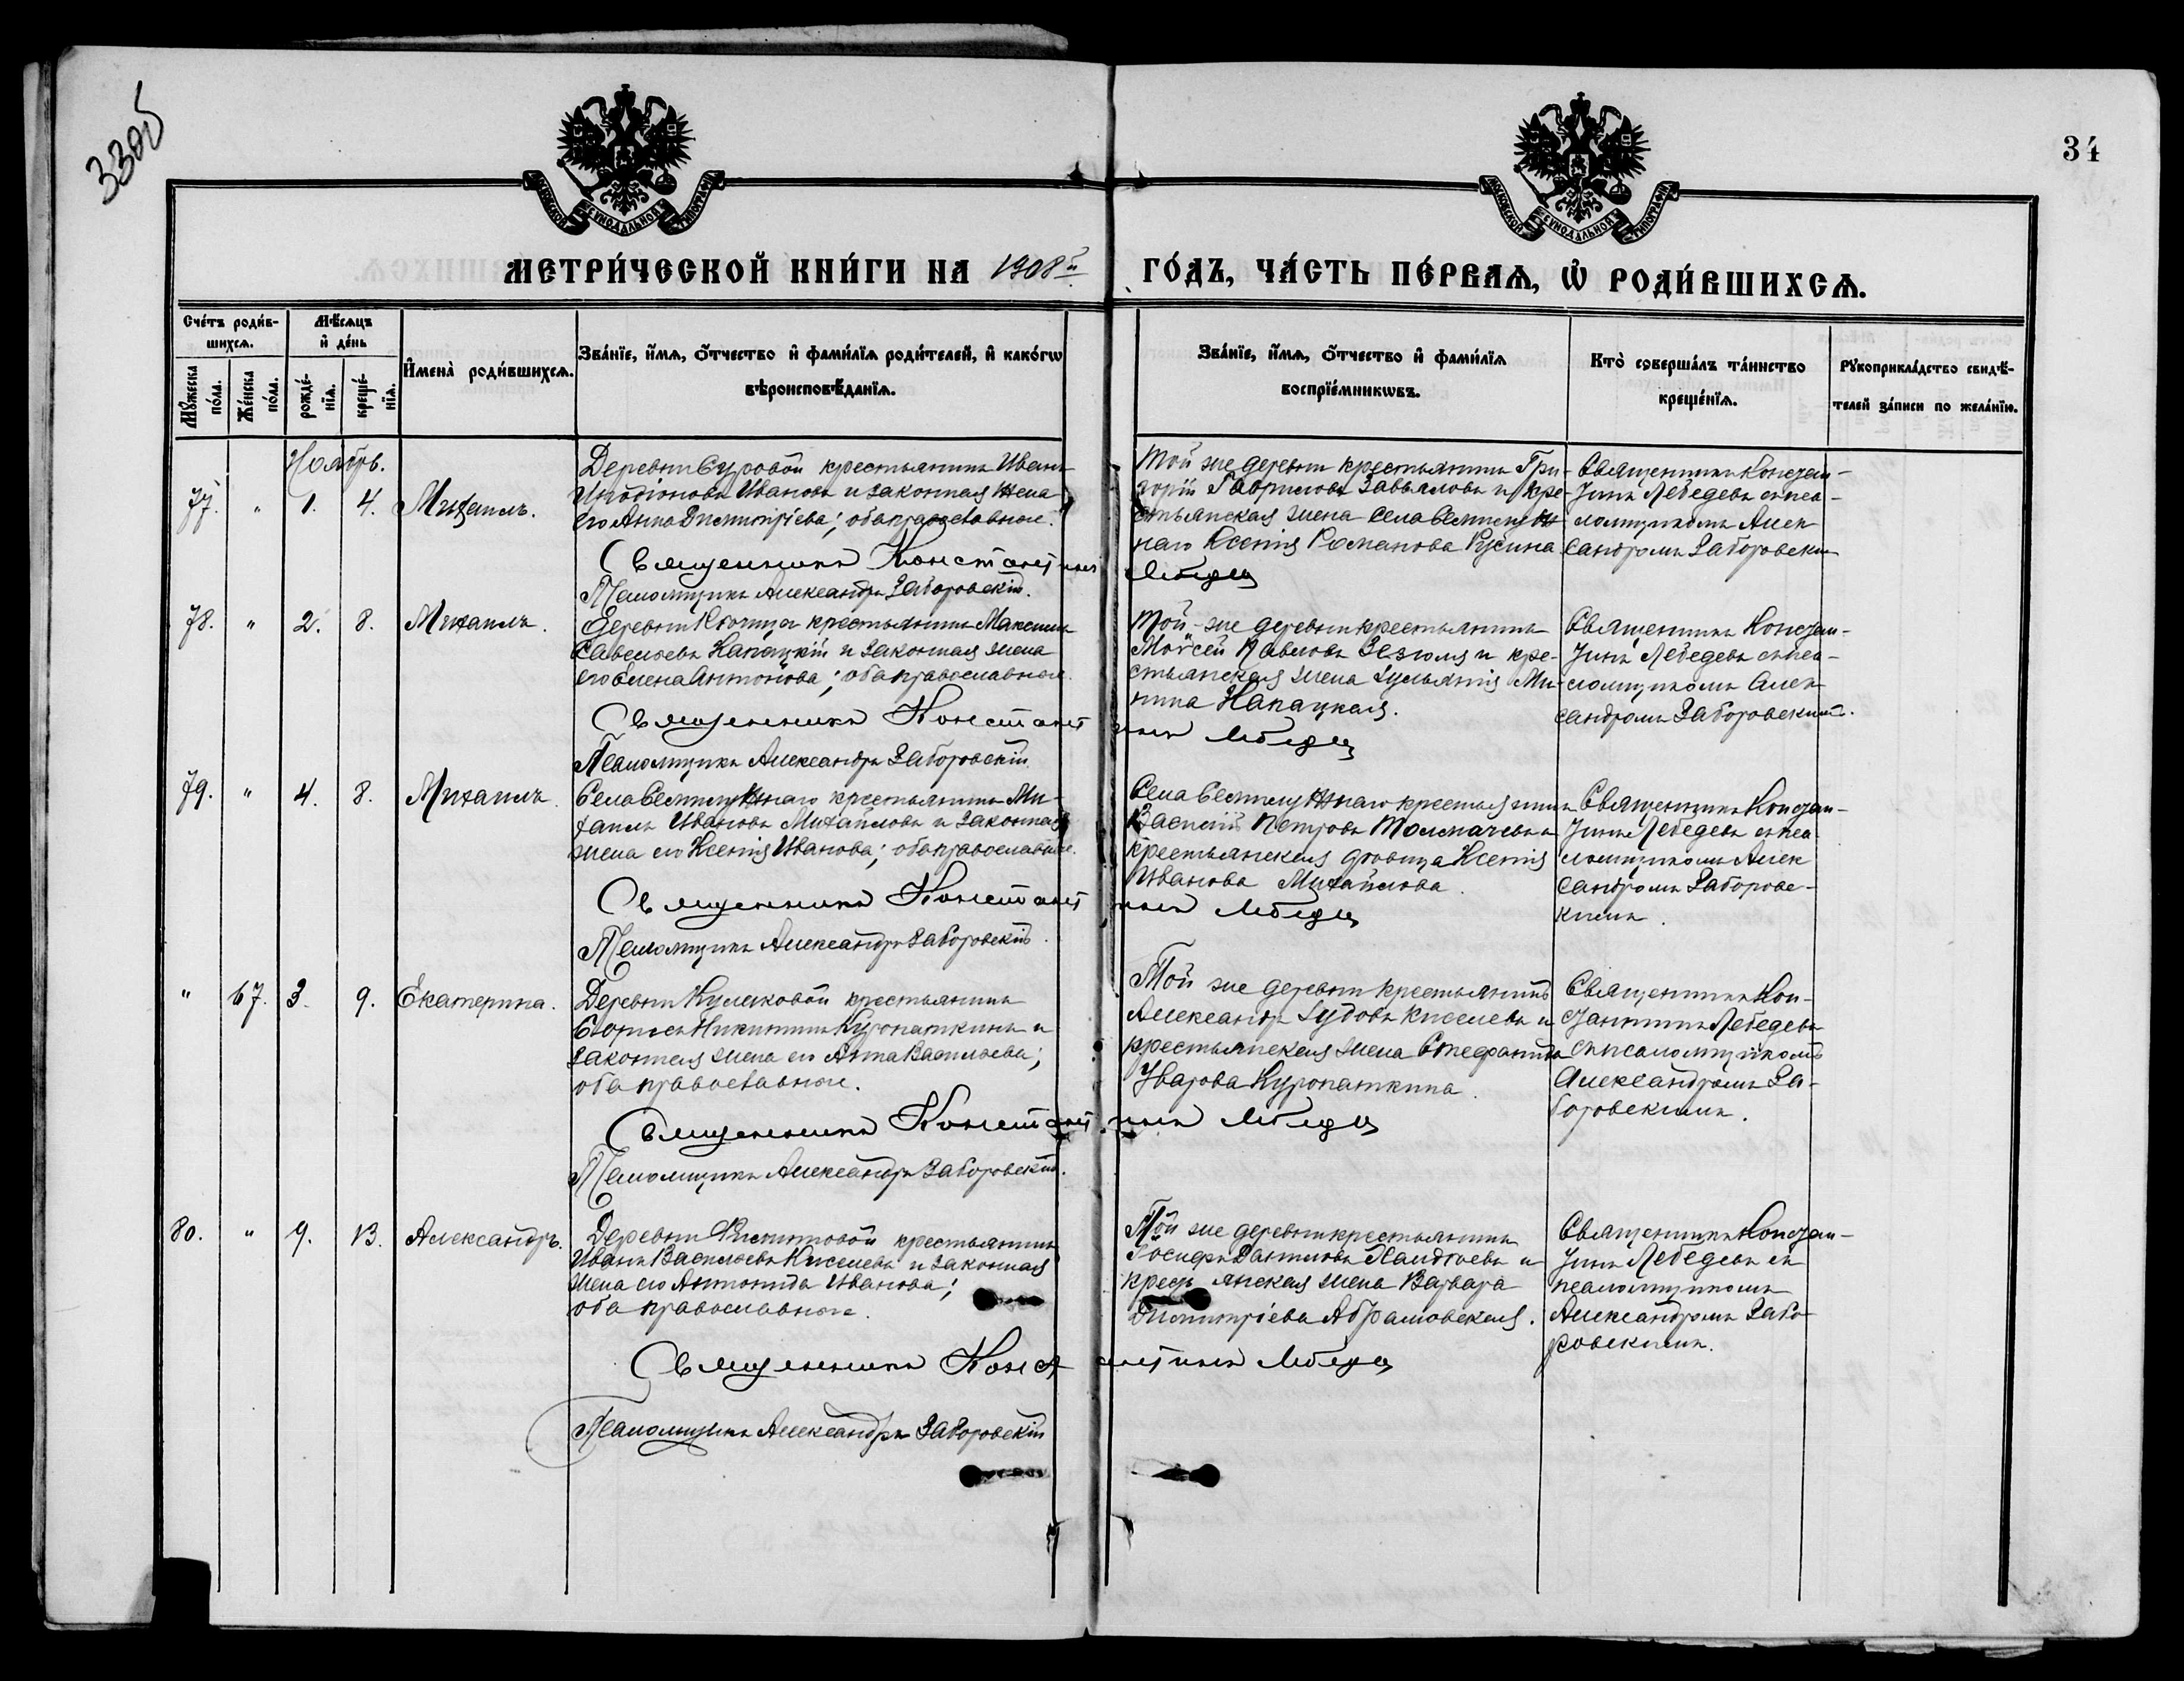 34
МОСКОВСКОЙ СѴНОДАЛЬНОЙ ТИПОГРАФІИ
МОСКОВСКОЙ СѴНОДАЛЬНОЙ ТИПОГРАФІИ
МЕТРИ́ЧЕСКОЙ КНИ́ГИ НА 1908й ГО́ДЪ, ЧА́СТЬ ПЕ́РВАѦ, Ѡ҆ РОДИ́ВШИХСѦ.
Сче́тъ роди́в-
шихсѧ.
Мѣ́сѧцъ
и҆ де́нь
Мꙋ́жеска
по́ла.
Же́нска
по́ла.
рожде́-
нїѧ.
креще́-
нїѧ.
И҆мена̀ роди́вшихсѧ.
Зва́нїе, и҆́мѧ, ѻ҆́тчество и҆ фами́лїѧ роди́телей, и҆ како́гѡ
вѣроисповѣ́данїѧ.
Зва́нїе, и҆́мѧ, ѻ҆́тчество и҆ фами́лїѧ
воспрїе́мникѡвъ.
Кто̀ соверша́лъ та́инство
креще́нїѧ.
Рꙋкоприкла́дство свидѣ́-
телей за́писи по жела́нїю.
Ноябрь.
77. " 1. 4. Михаилъ.
Деревни Суровой крестьянинъ Иванъ
Иродіоновъ Ивановъ и законная жена
его Анна Димитріева; оба православные.
Священникъ Константинъ Лебедевъ
Псаломщикъ Александръ Заборовскій.
Той же деревни крестьянинъ Гри-
горій Гавриловъ Завьяловъ и кре-
стьянская жена села
наго Ксенія Романова Русина
Священникъ Констан-
тинъ Лебедевъ съ пса-
ломщикомъ Алек
сандромъ Заборовскимъ
78. " 2. 8. Михаилъ.
Деревни крестьянинъ Максимъ
Савельевъ Напацкій и законная жена
его Елена Антонова; оба православные.
Священникъ Константинъ Лебедевъ
Псаломщикъ Александръ Заборовскій
Той-же деревни крестьянинъ
Моѵсей Павловъ Зезюля и кре-
стьянская жена Іуліанія Ми-
нина Напацкая.
Священникъ Констан-
тинъ Лебедевъ съ пса-
ломщикомъ Алек
сандромъ Заборовскимъ.
79. " 4. 8. Михаилъ.
Села крестьянинъ Ми-
хаилъ Ивановъ Михайловъ и законная
жена его Ксенія Иванова; оба православные.
Священникъ Константинъ Лебедевъ
Псаломщикъ Александръ Заборовскій.
Села крестьянинъ
Василій Петровъ Толмачевъ и
крестьянская дѣвица Ксенія
Иванова Михайлова.
Священникъ Констан-
тинъ Лебедевъ съ пса
ломщикомъ Алек
сандромъ Заборовс-
кимъ.
" 67. 3. 9. Екатерина.
Деревни Куликовой крестьянинъ
Борисъ Никитинъ Куропаткинъ и
законная жена его Анна Васильева;
оба православные.
Священникъ Константинъ Лебедевъ
Псаломщикъ Александръ Заборовскій.
Той же деревни крестьянинъ
Александръ Іудовъ Киселевъ и
крестьянская жена Стефанида
Уварова Куропаткина.
Священникъ Кон-
стантинъ Лебедевъ
съ псаломщикомъ
Александромъ За-
боровскимъ.
80. " 9. 13. Александръ.
Деревни Филиповой крестьянинъ
Иванъ Васильевъ Киселевъ и законная
жена его Антонида Иванова;
оба православные.
Священникъ Константинъ Лебедевъ
Псаломщикъ Александръ Заборовскій
Той же деревни крестьянинъ
Іосифъ Даниловъ и
крестьянская жена Варвара
Димитріева Абрамовская.
Священникъ Констан-
тинъ Лебедевъ съ
псаломщикомъ
Александромъ Забо
ровскимъ.